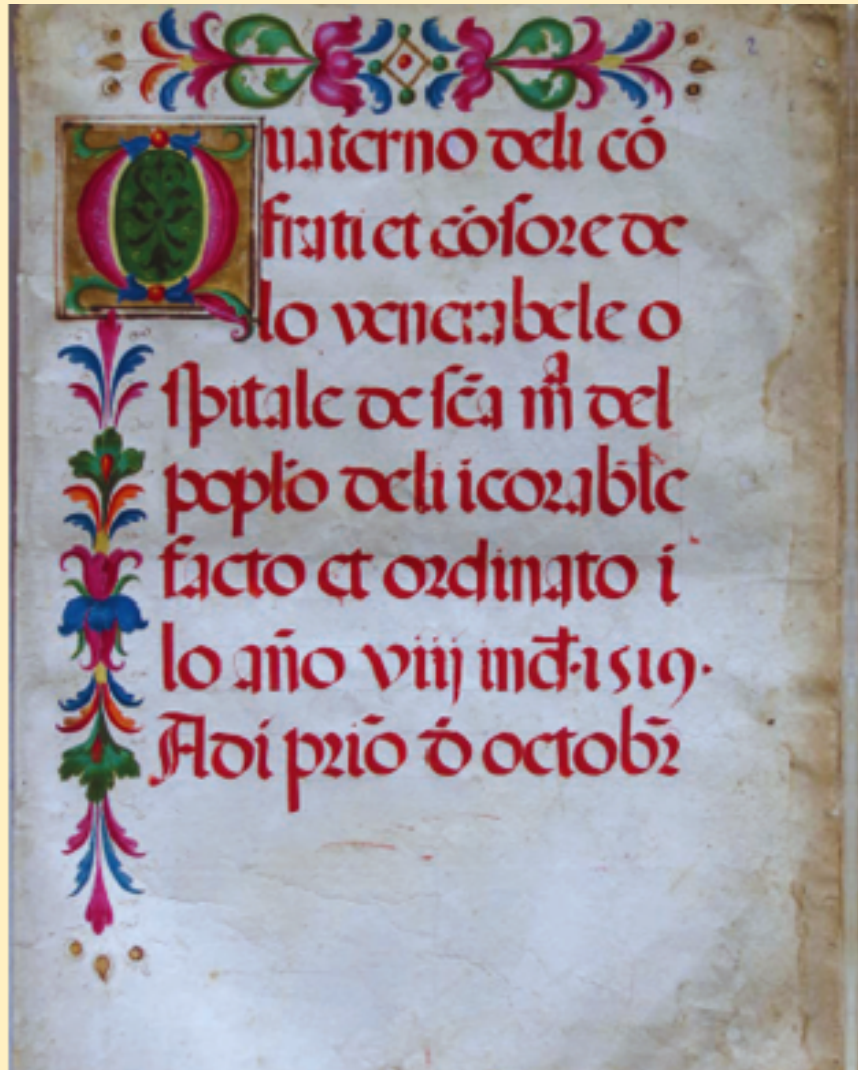 2
Quaterno deli cō
frati et cōsore de
lo venerabele o
spitale de sc̄a mᵃ del
poplo deli icorable
facto et ordinato i
lo año viij ind. 1519.
Adi prio d̄ octobr